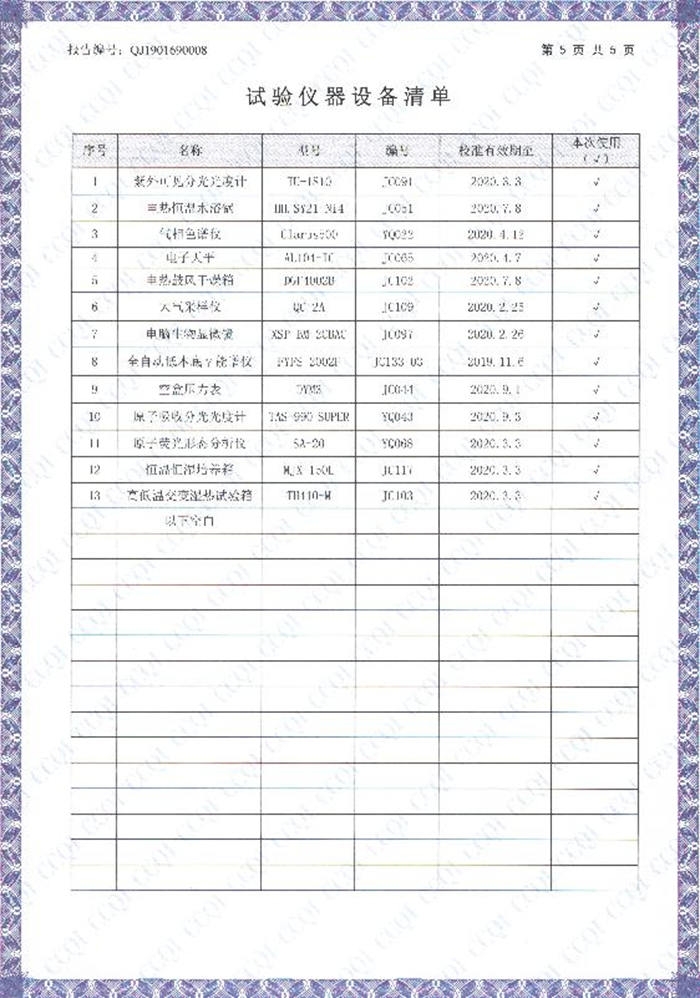 报告编号：QJ1901690008 第 5 页 共 5 页
试验仪器设备清单
序号 名称 型号 编号 校准有效期至 本次使用（√）
1 紫外可见分光光度计 TU-1810 JC091 2020.3.3 √
2 电热恒温水浴锅 HH.SY21-Ni4 JC051 2020.7.8 √
3 气相色谱仪 Clarus500 YQ022 2020.4.12 √
4 电子天平 AL104-IC JC065 2020.4.7 √
5 电热鼓风干燥箱 JC102 2020.7.8 √
6 大气采样仪 QC-2A JC109 2020.2.25 √
7 电脑生物显微镜 JC097 2020.2.26 √
8 全自动低本底γ能谱仪 JC133-03 2019.11.6 √
9 空盒压力表 DYM3 JC044 2020.9.1 √
10 原子吸收分光光度计 TAS-990 SUPER YQ043 2020.9.3 √
11 原子荧光形态分析仪 SA-20 YQ068 2020.3.3 √
12 恒温恒湿培养箱 MJX-150L JC117 2020.3.3 √
13 高低温交变湿热试验箱 TH410-M JC103 2020.3.3 √
以下空白